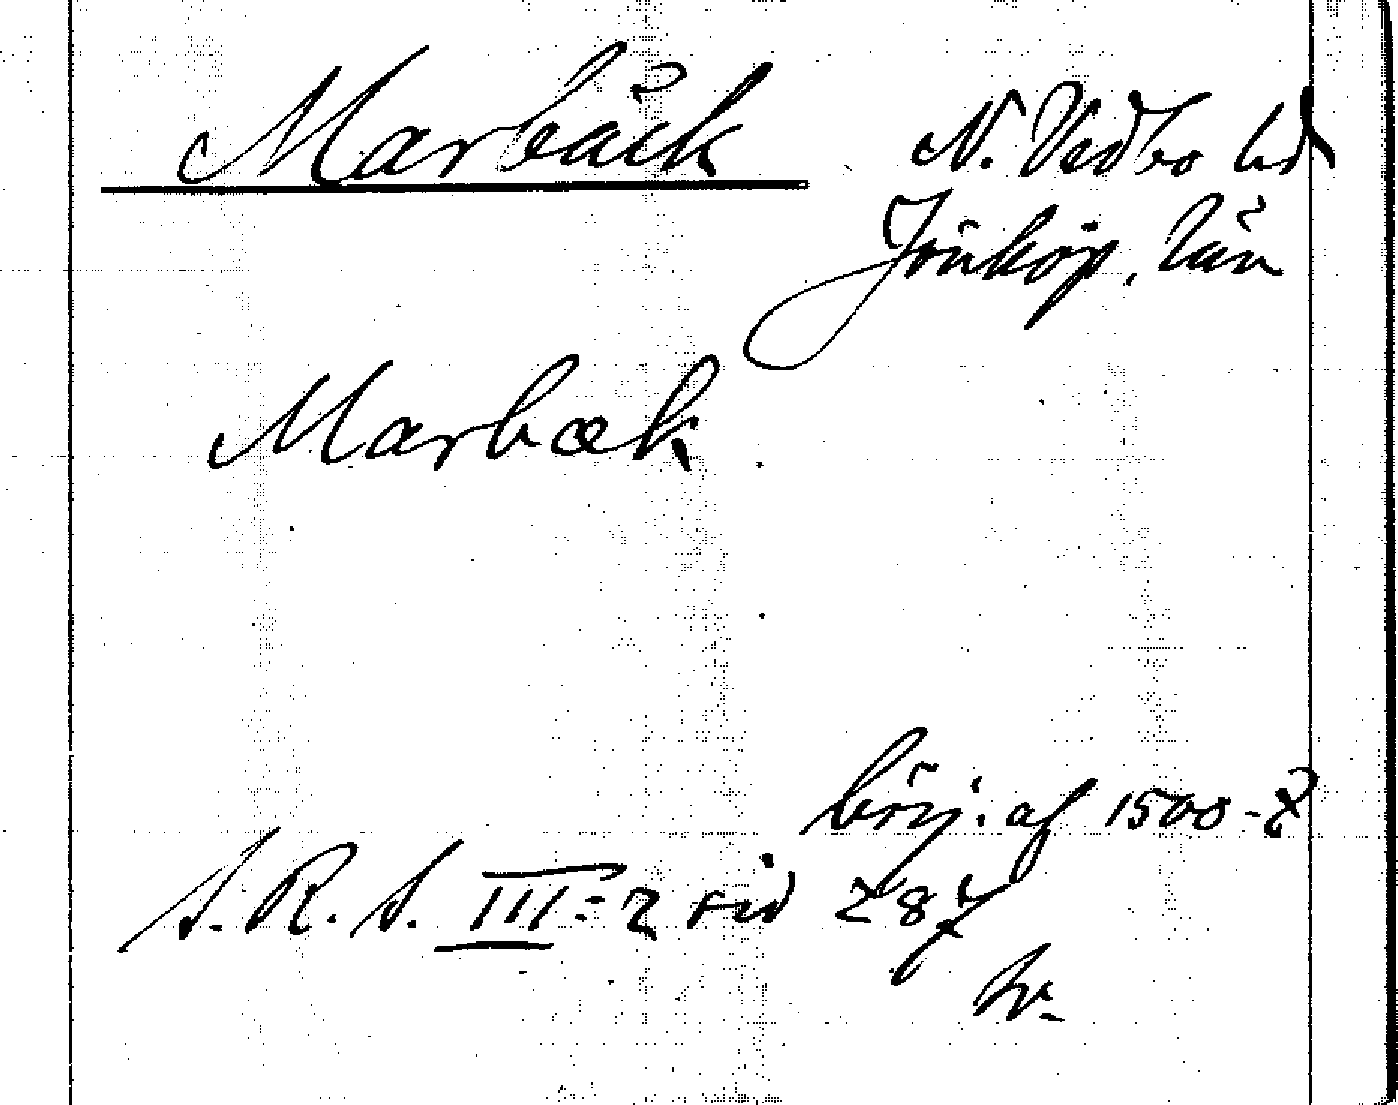 Marbäck N. Vedbo hd
Jönköp. län
Marbæk
börj. af 1500-t
S. R. S. III:2 sid 287